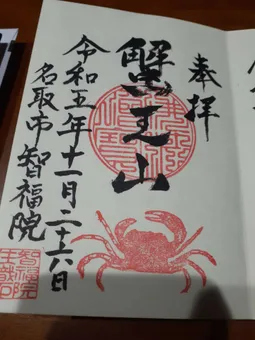 奉拝
蟹王山
令和五年十一月二十六日
名取市 智福院